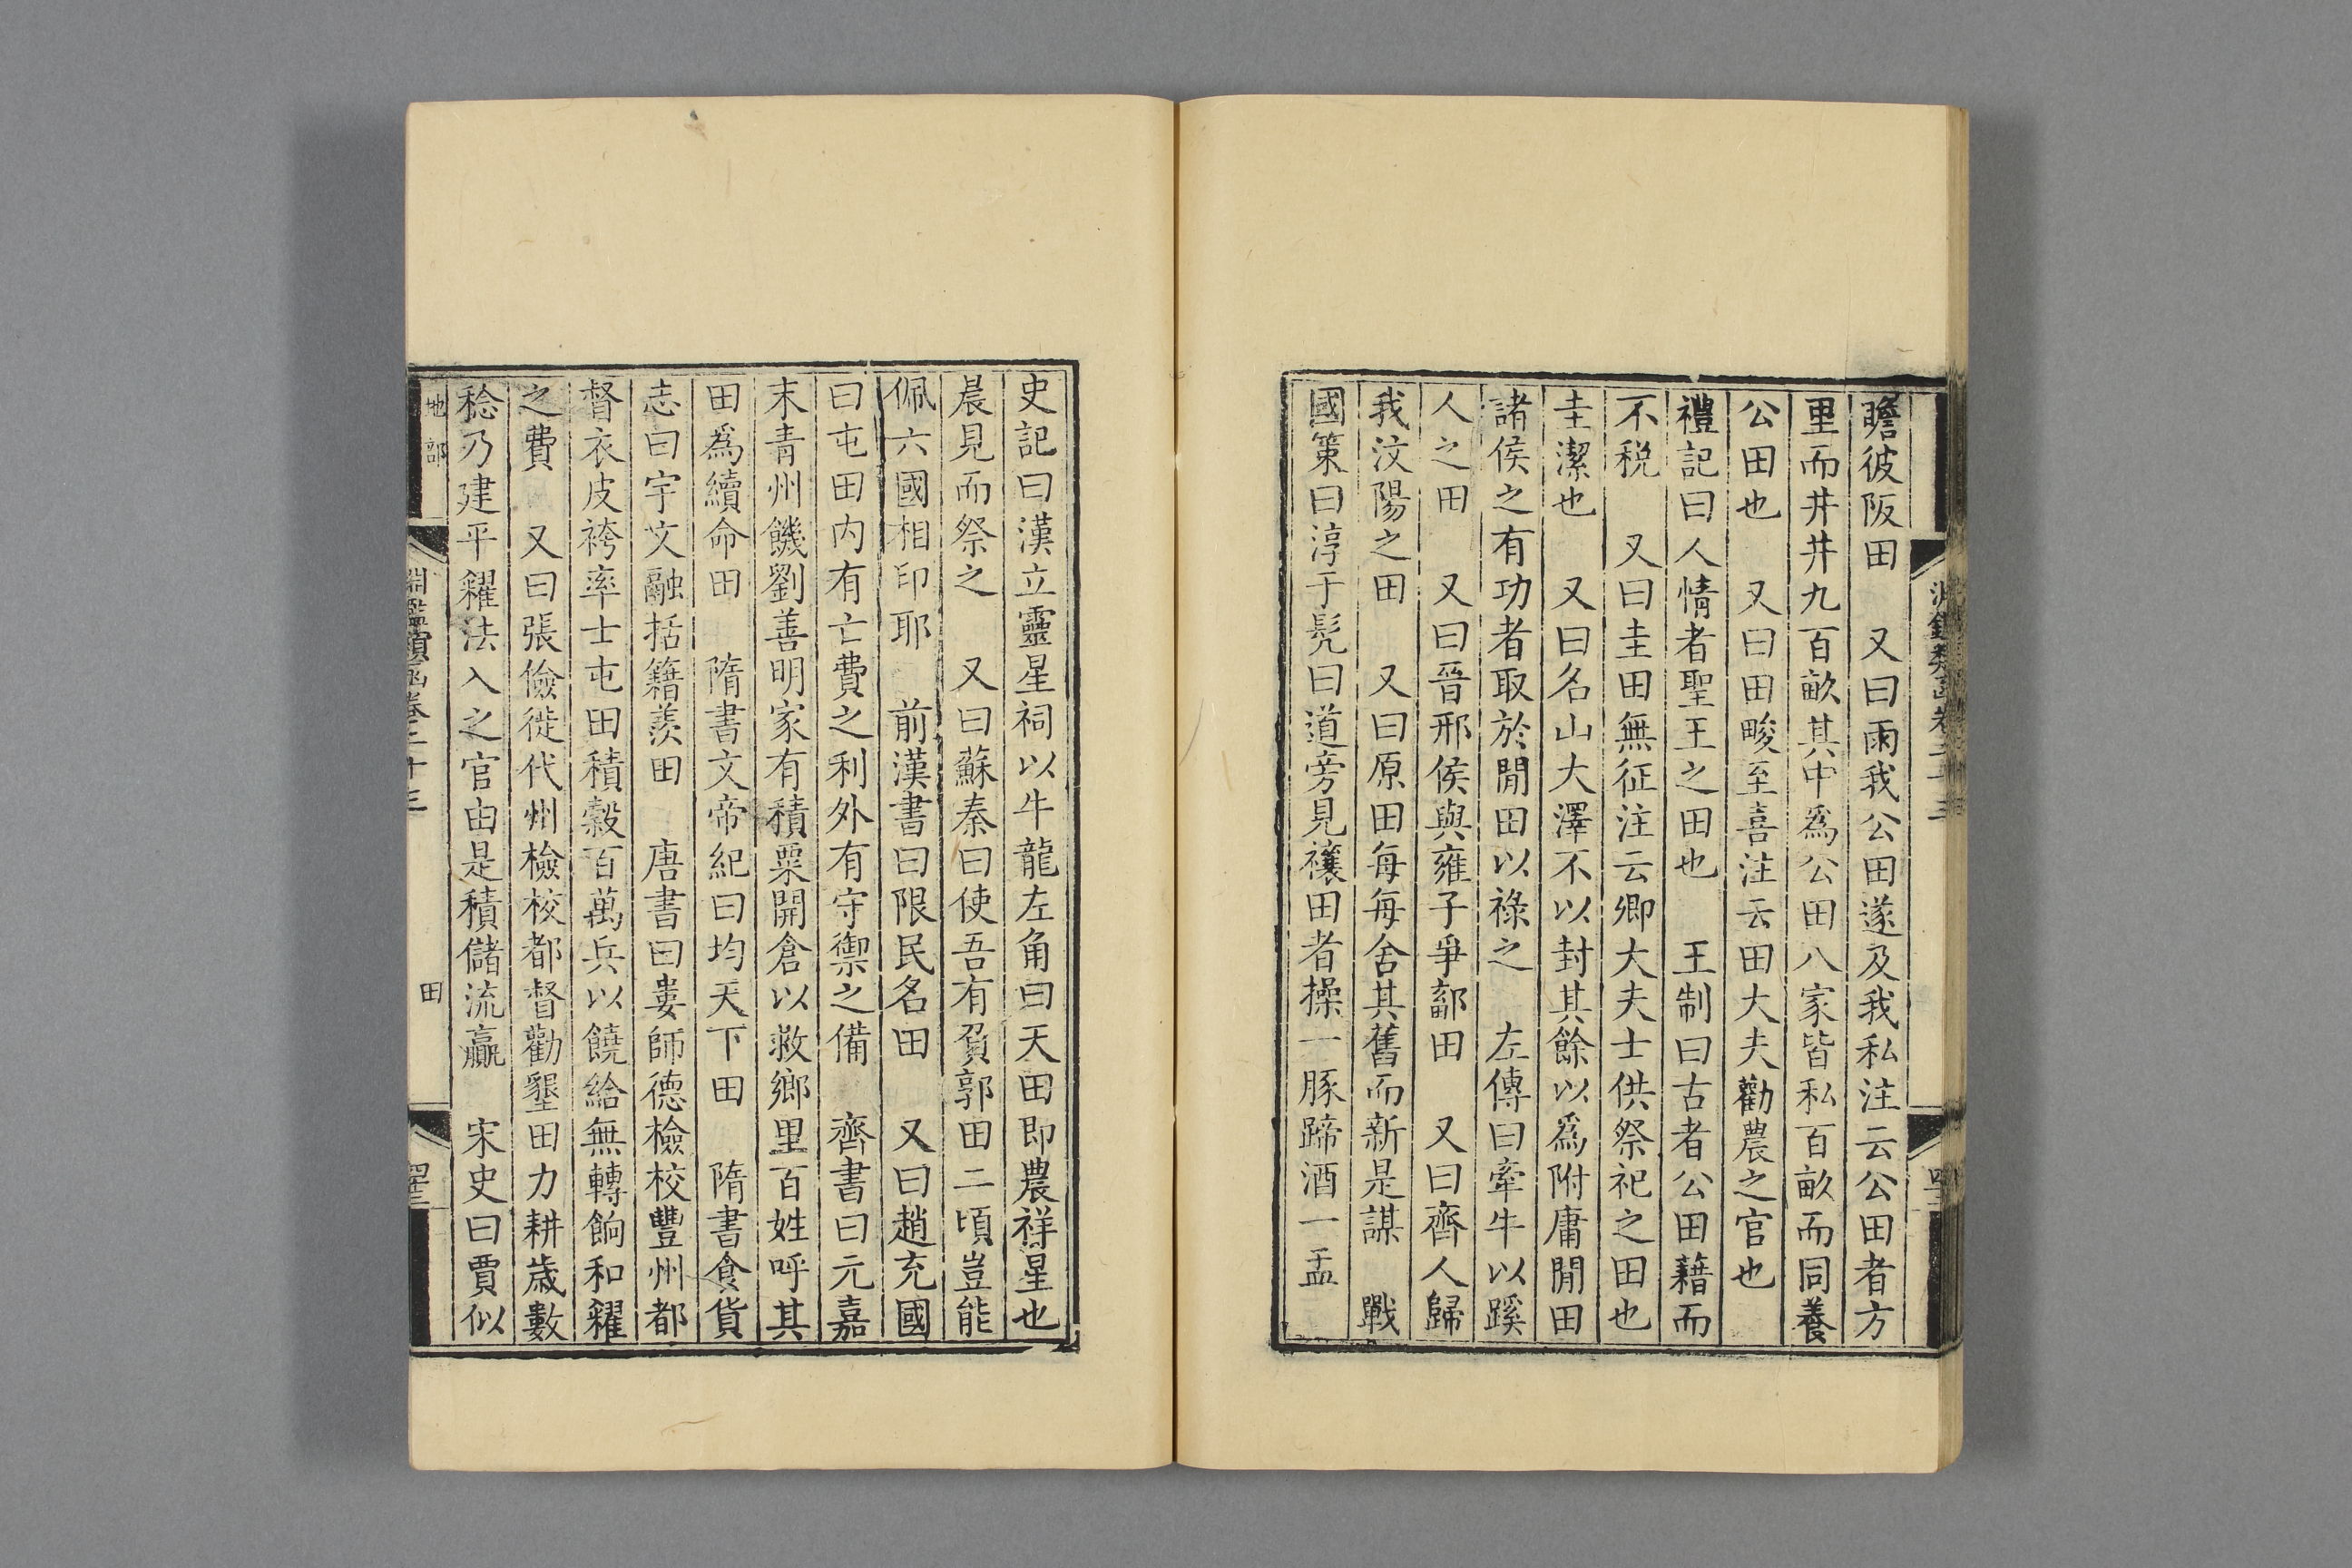 瞻彼阪田　又曰雨我公田遂及我私注云公田者方
里而井井九百畝其中爲公田八家皆私百畝而同養
公田也　又曰田畯至喜注云田大夫勸農之官也
禮記曰人情者聖王之田也　王制曰古者公田藉而
不税　又曰圭田無征注云卿大夫士供祭祀之田也
圭潔也　又曰名山大澤不以封其餘以爲附庸閒田
諸侯之有功者取於閒田以祿之　左傳曰牽牛以蹊
人之田　又曰晉邢侯與雍子爭鄐田　又曰齊人歸
我汶陽之田　又曰原田每每舍其舊而新是謀　戰
國策曰淳于髠曰道旁見禳田者操一豚蹄酒一盂
史記曰漢立靈星祠以牛龍左角曰天田即農祥星也
晨見而祭之　又曰蘇秦曰使吾有負郭田二頃豈能
佩六國相印耶　前漢書曰限民名田　又曰趙充國
曰屯田内有亡費之利外有守禦之備　齊書曰元嘉
末青州饑劉善明家有積粟開倉以救鄉里百姓呼其
田爲續命田　隋書文帝紀曰均天下田　隋書食貨
志曰宇文融括籍羨田　唐書曰婁師德檢校豐州都
督衣皮袴率士屯田積穀百萬兵以饒給無轉餉和糴
之費　又曰張儉徙代州檢校都督勸墾田力耕歲數
稔乃建平糴法入之官由是積儲流羸　宋史曰賈似
地部　淵鑑類函卷三十三　田